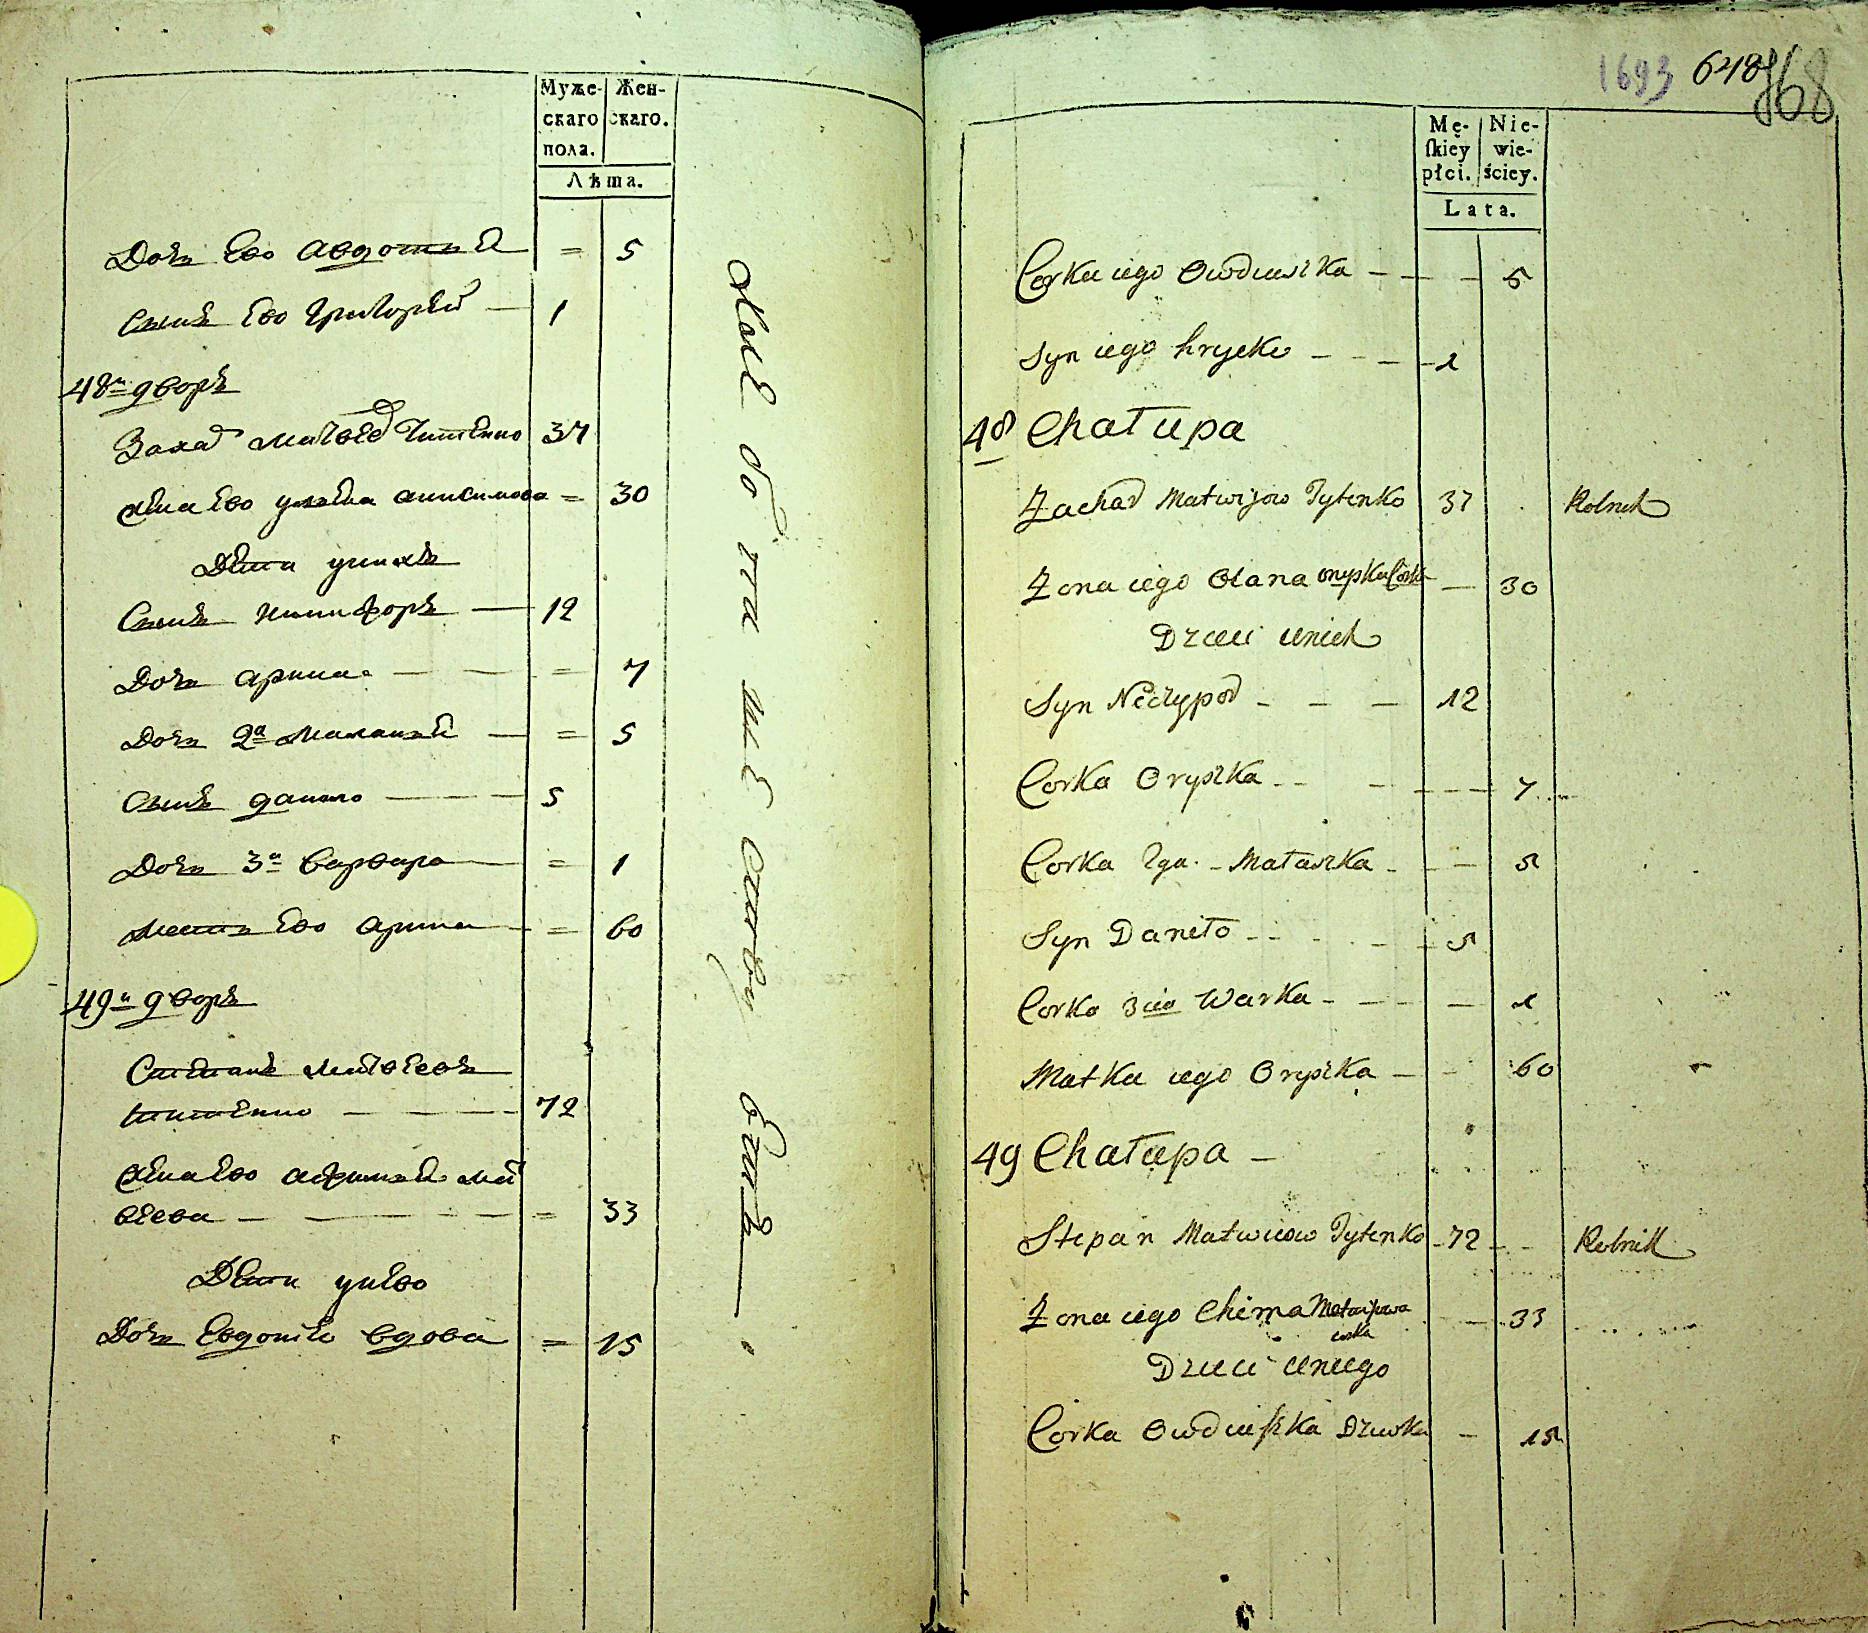 Муже-
скаго
пола.
Жен-
скаго.
Лѣта.
Дочь ево Авдотия = 5
Сынъ ево Григорей — 1
48й дворъ
Захар Матвеев Титенко 37
Жена ево Ульяна Анисимова = 30
Дети у нихъ
Сынъ Ничипоръ — 12
Дочь Арина — = 7
Дочь 2я Маланья — = 5
Сынъ Данило — 5
Дочь 3я Варвара — = 1
Мать ево Арина — = 60
49й дворъ
Степанъ Матвеевъ
Титенко — 72
Жена ево Афимья Мат
веева — = 33
Дети у нево
Дочь Евдотия вдова = 15
1693 648 868
Mę-
skiey
płci.
Nie-
wie-
ściey.
Lata.
Corka iego Owdiuszka — 5
Syn iego Hryćko — 1
48 Chałupa
Zachar Matwijow Tytenko 37 Rolnik
Zona iego Olana Onyska Corka — 30
Dzieci unich
Syn Neczypor — 12
Corka Oryszka — 7
Corka 2ga — Małaszka — 5
Syn Daniło — 5
Corka 3cia Warka — 1
Matka iego Oryszka — 60
49 Chałupa —
Stepan Matwiiow Tytenko 72 Rolnik
Zona iego Chima Matwijowa
corka — 33
Dzieci uniego
Corka Owdiuszka Dziewka — 15